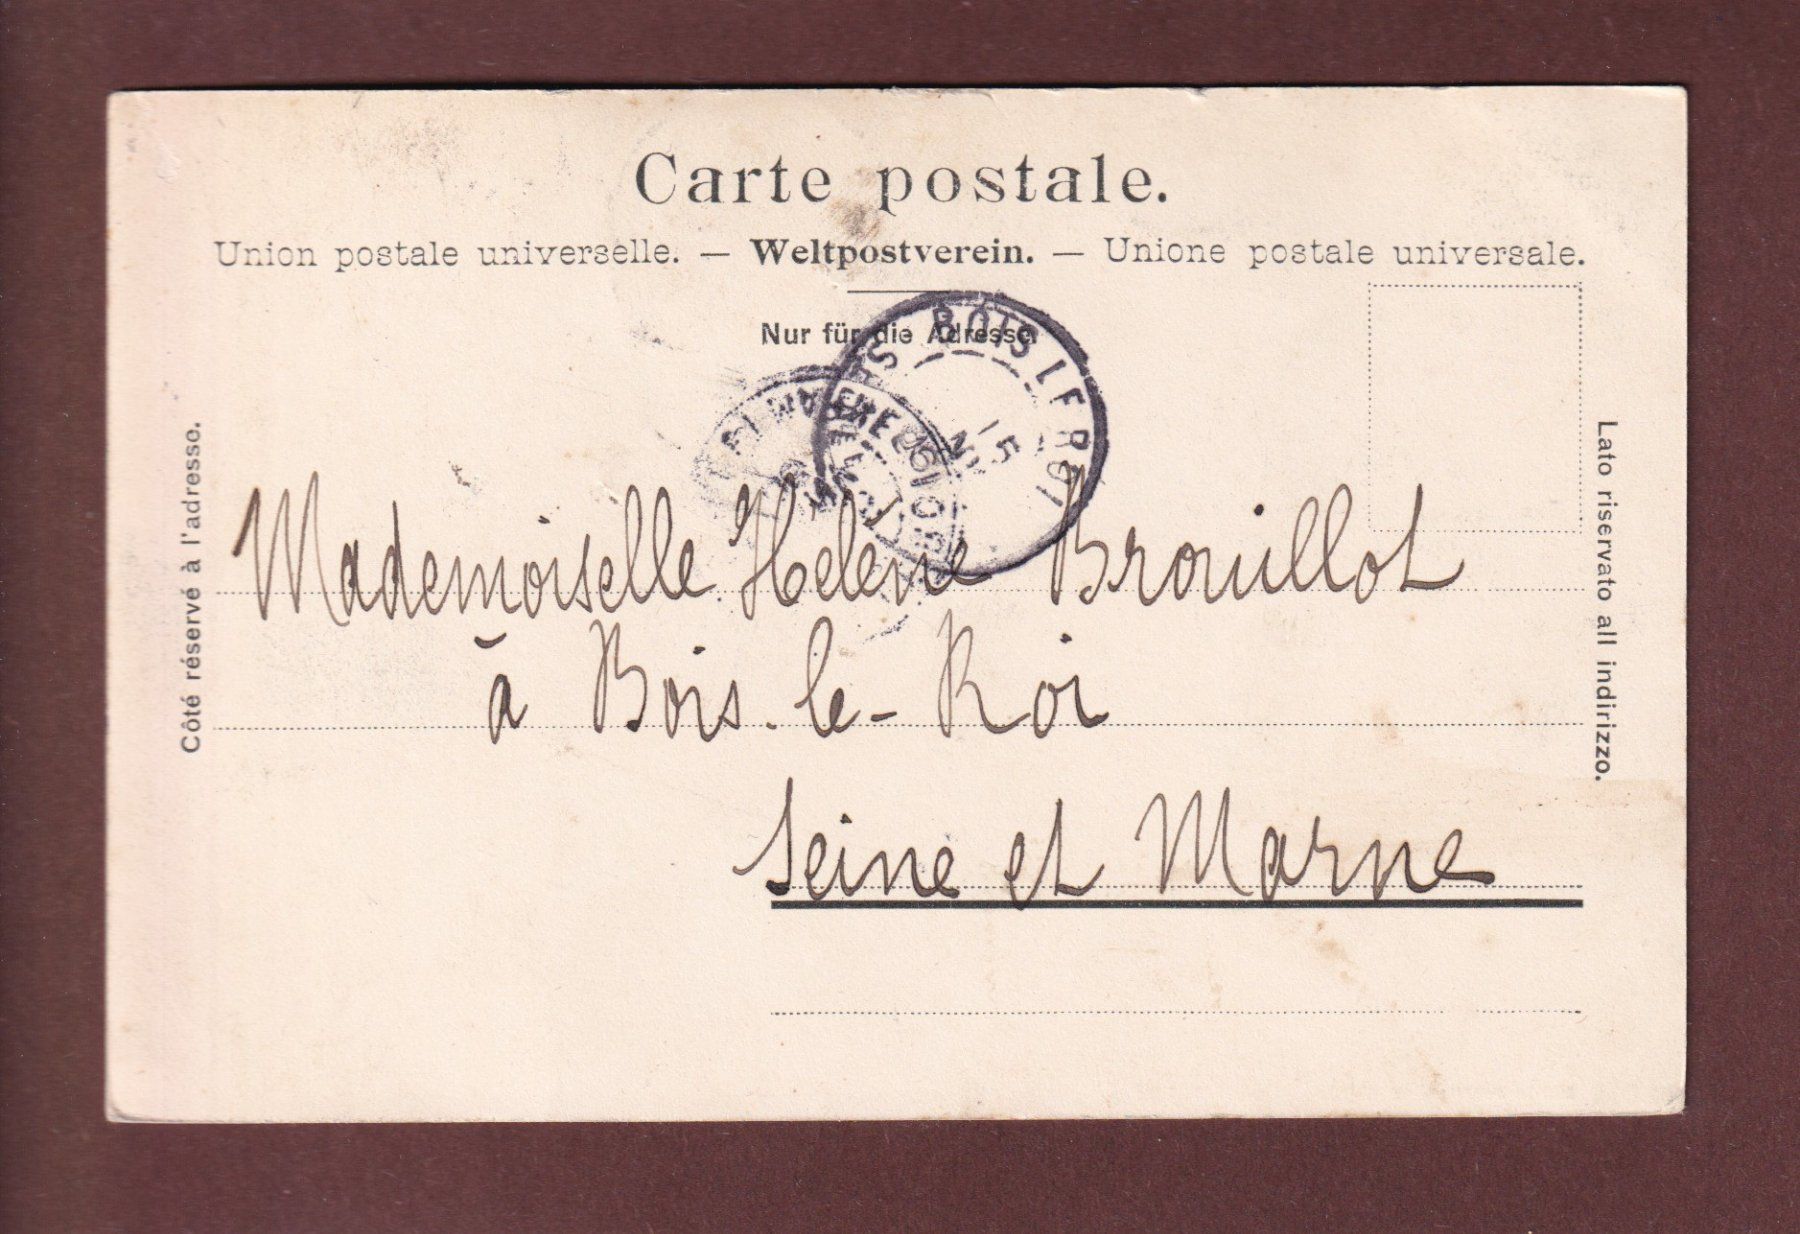 Carte postale.
Union postale universelle. — Weltpostverein. — Unione postale universale.
Nur für die Adresse
BOIS LE ROI
15
Côté réservé à l'adresse.
Lato riservato all indirizzo.
Mademoiselle Hélène Brouillot
à Bois-le-Roi
Seine et Marne